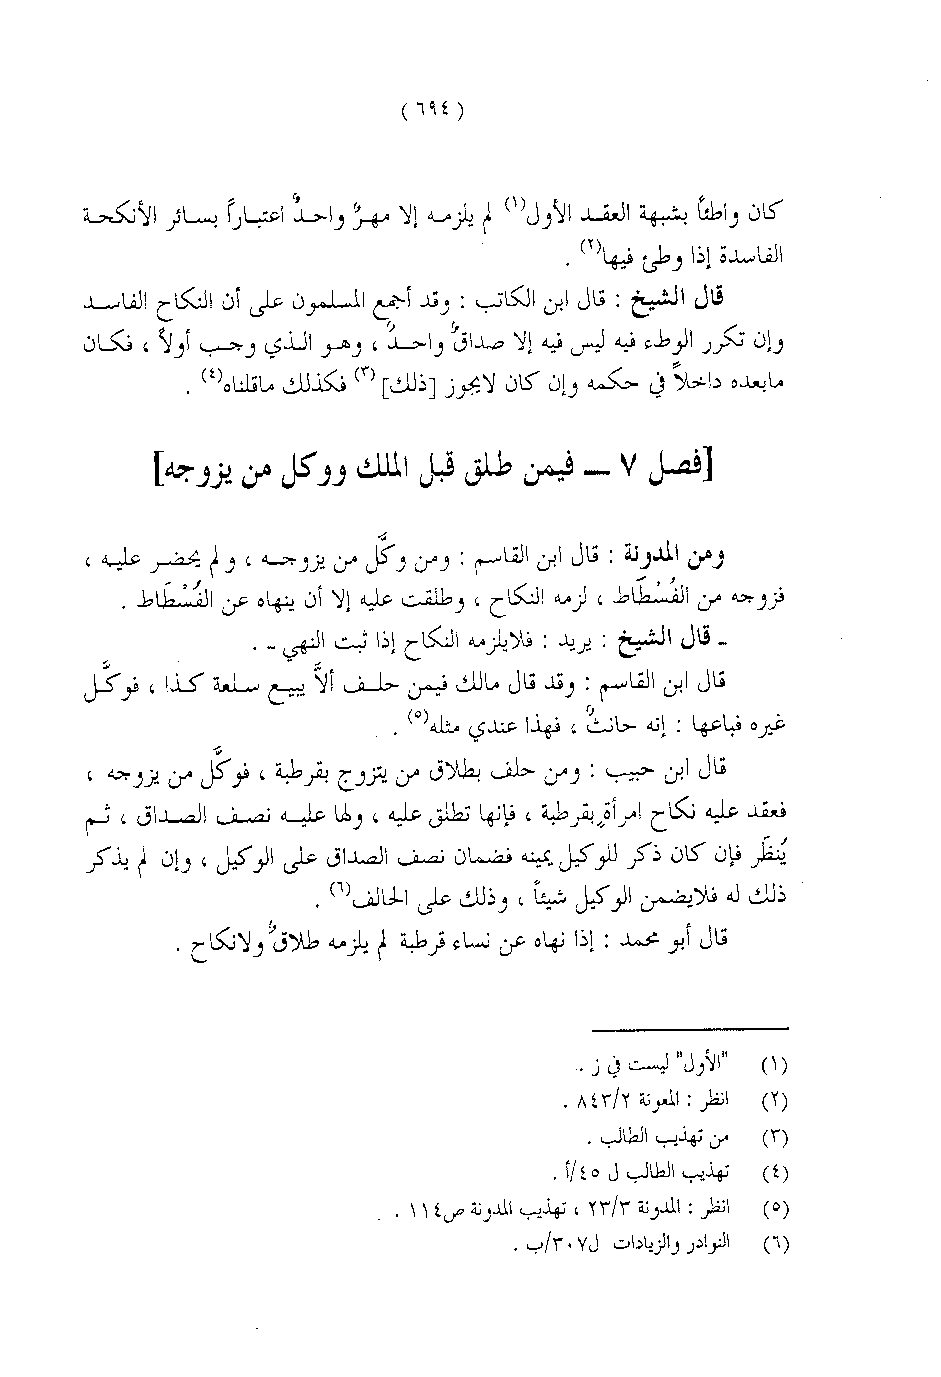 ( ٦٩٤ )
كان واطئاً بشبهة العقد الأول(١) لم يلزمه إلا مهرٌ واحدٌ اعتباراً بسائر الأنكحة
الفاسدة إذا وطئ فيها(٢) .
قال الشيخ : قال ابن الكاتب : وقد أجمع المسلمون على أن النكاح الفاسد
وإن تكرر الوطء فيه ليس فيه إلا صداقٌ واحدٌ ، وهو الذي وجب أولاً ، فكان
مابعده داخلاً في حكمه وإن كان لايجوز [ذلك](٣) فكذلك ماقلناه(٤) .
[فصل ٧ – فيمن طلق قبل الملك ووكل من يزوجه]
ومن المدونة : قال ابن القاسم : ومن وكَّل من يزوجه ، ولم يحضر عليه ،
فزوجه من الفُسْطَاط ، لزمه النكاح ، وطلقت عليه إلا أن ينهاه عن الفُسْطَاط .
- قال الشيخ : يريد : فلايلزمه النكاح إذا ثبت النهي - .
قال ابن القاسم : وقد قال مالك فيمن حلف ألاَّ يبيع سلعة كذا ، فوكَّل
غيره فباعها : إنه حانثٌ ، فهذا عندي مثله(٥) .
قال ابن حبيب : ومن حلف بطلاق من يتزوج بقرطبة ، فوكَّل من يزوجه ،
فعقد عليه نكاح امرأةٍ بقرطبة ، فإنها تطلق عليه ، ولها عليه نصف الصداق ، ثم
يُنظَر فإن كان ذكر للوكيل يمينه فضمان نصف الصداق على الوكيل ، وإن لم يذكر
ذلك له فلايضمن الوكيل شيئاً ، وذلك على الحالف(٦) .
قال أبو محمد : إذا نهاه عن نساء قرطبة لم يلزمه طلاقٌ ولانكاح .
(١) "الأول" ليست في ز .
(٢) انظر : المعونة ٨٤٣/٢ .
(٣) من تهذيب الطالب .
(٤) تهذيب الطالب ل ٤٥/أ .
(٥) انظر : المدونة ٢٣/٣ ، تهذيب المدونة ص١١٤ .
(٦) النوادر والزيادات ل٣٠٧/ب .